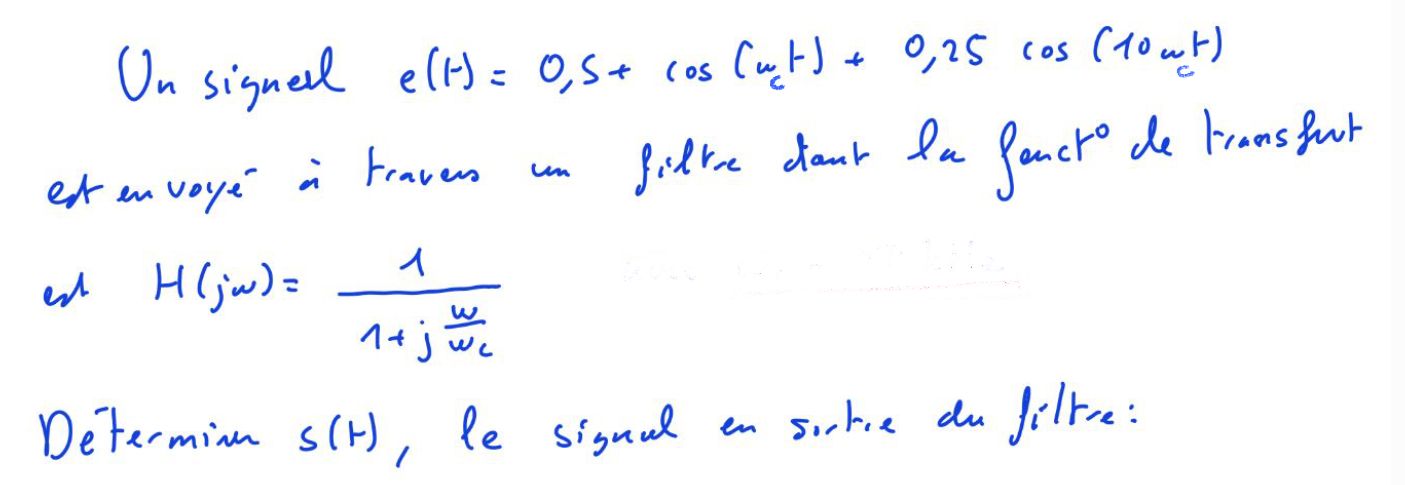 Un signal e(t) = 0,5 + cos(ω_c t) + 0,25 cos(10 ω_c t)
est envoyé à travers un filtre dont la fonct° de transfert
est H(jω) = 1 / (1 + j ω/ω_c)
Déterminer s(t), le signal en sortie du filtre :